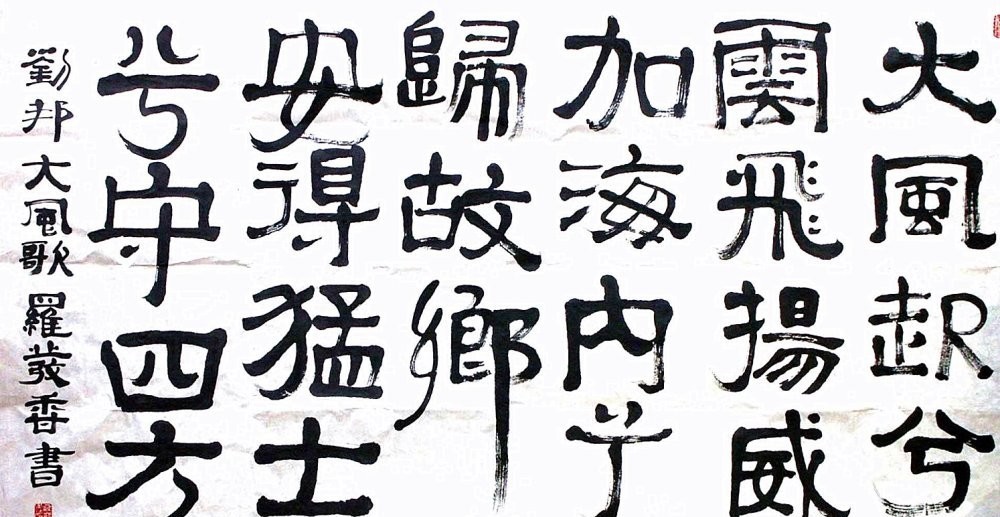 大風起兮
雲飛揚威
加海内兮
歸故鄉
安得猛士
兮守四方
劉邦大風歌羅發香書